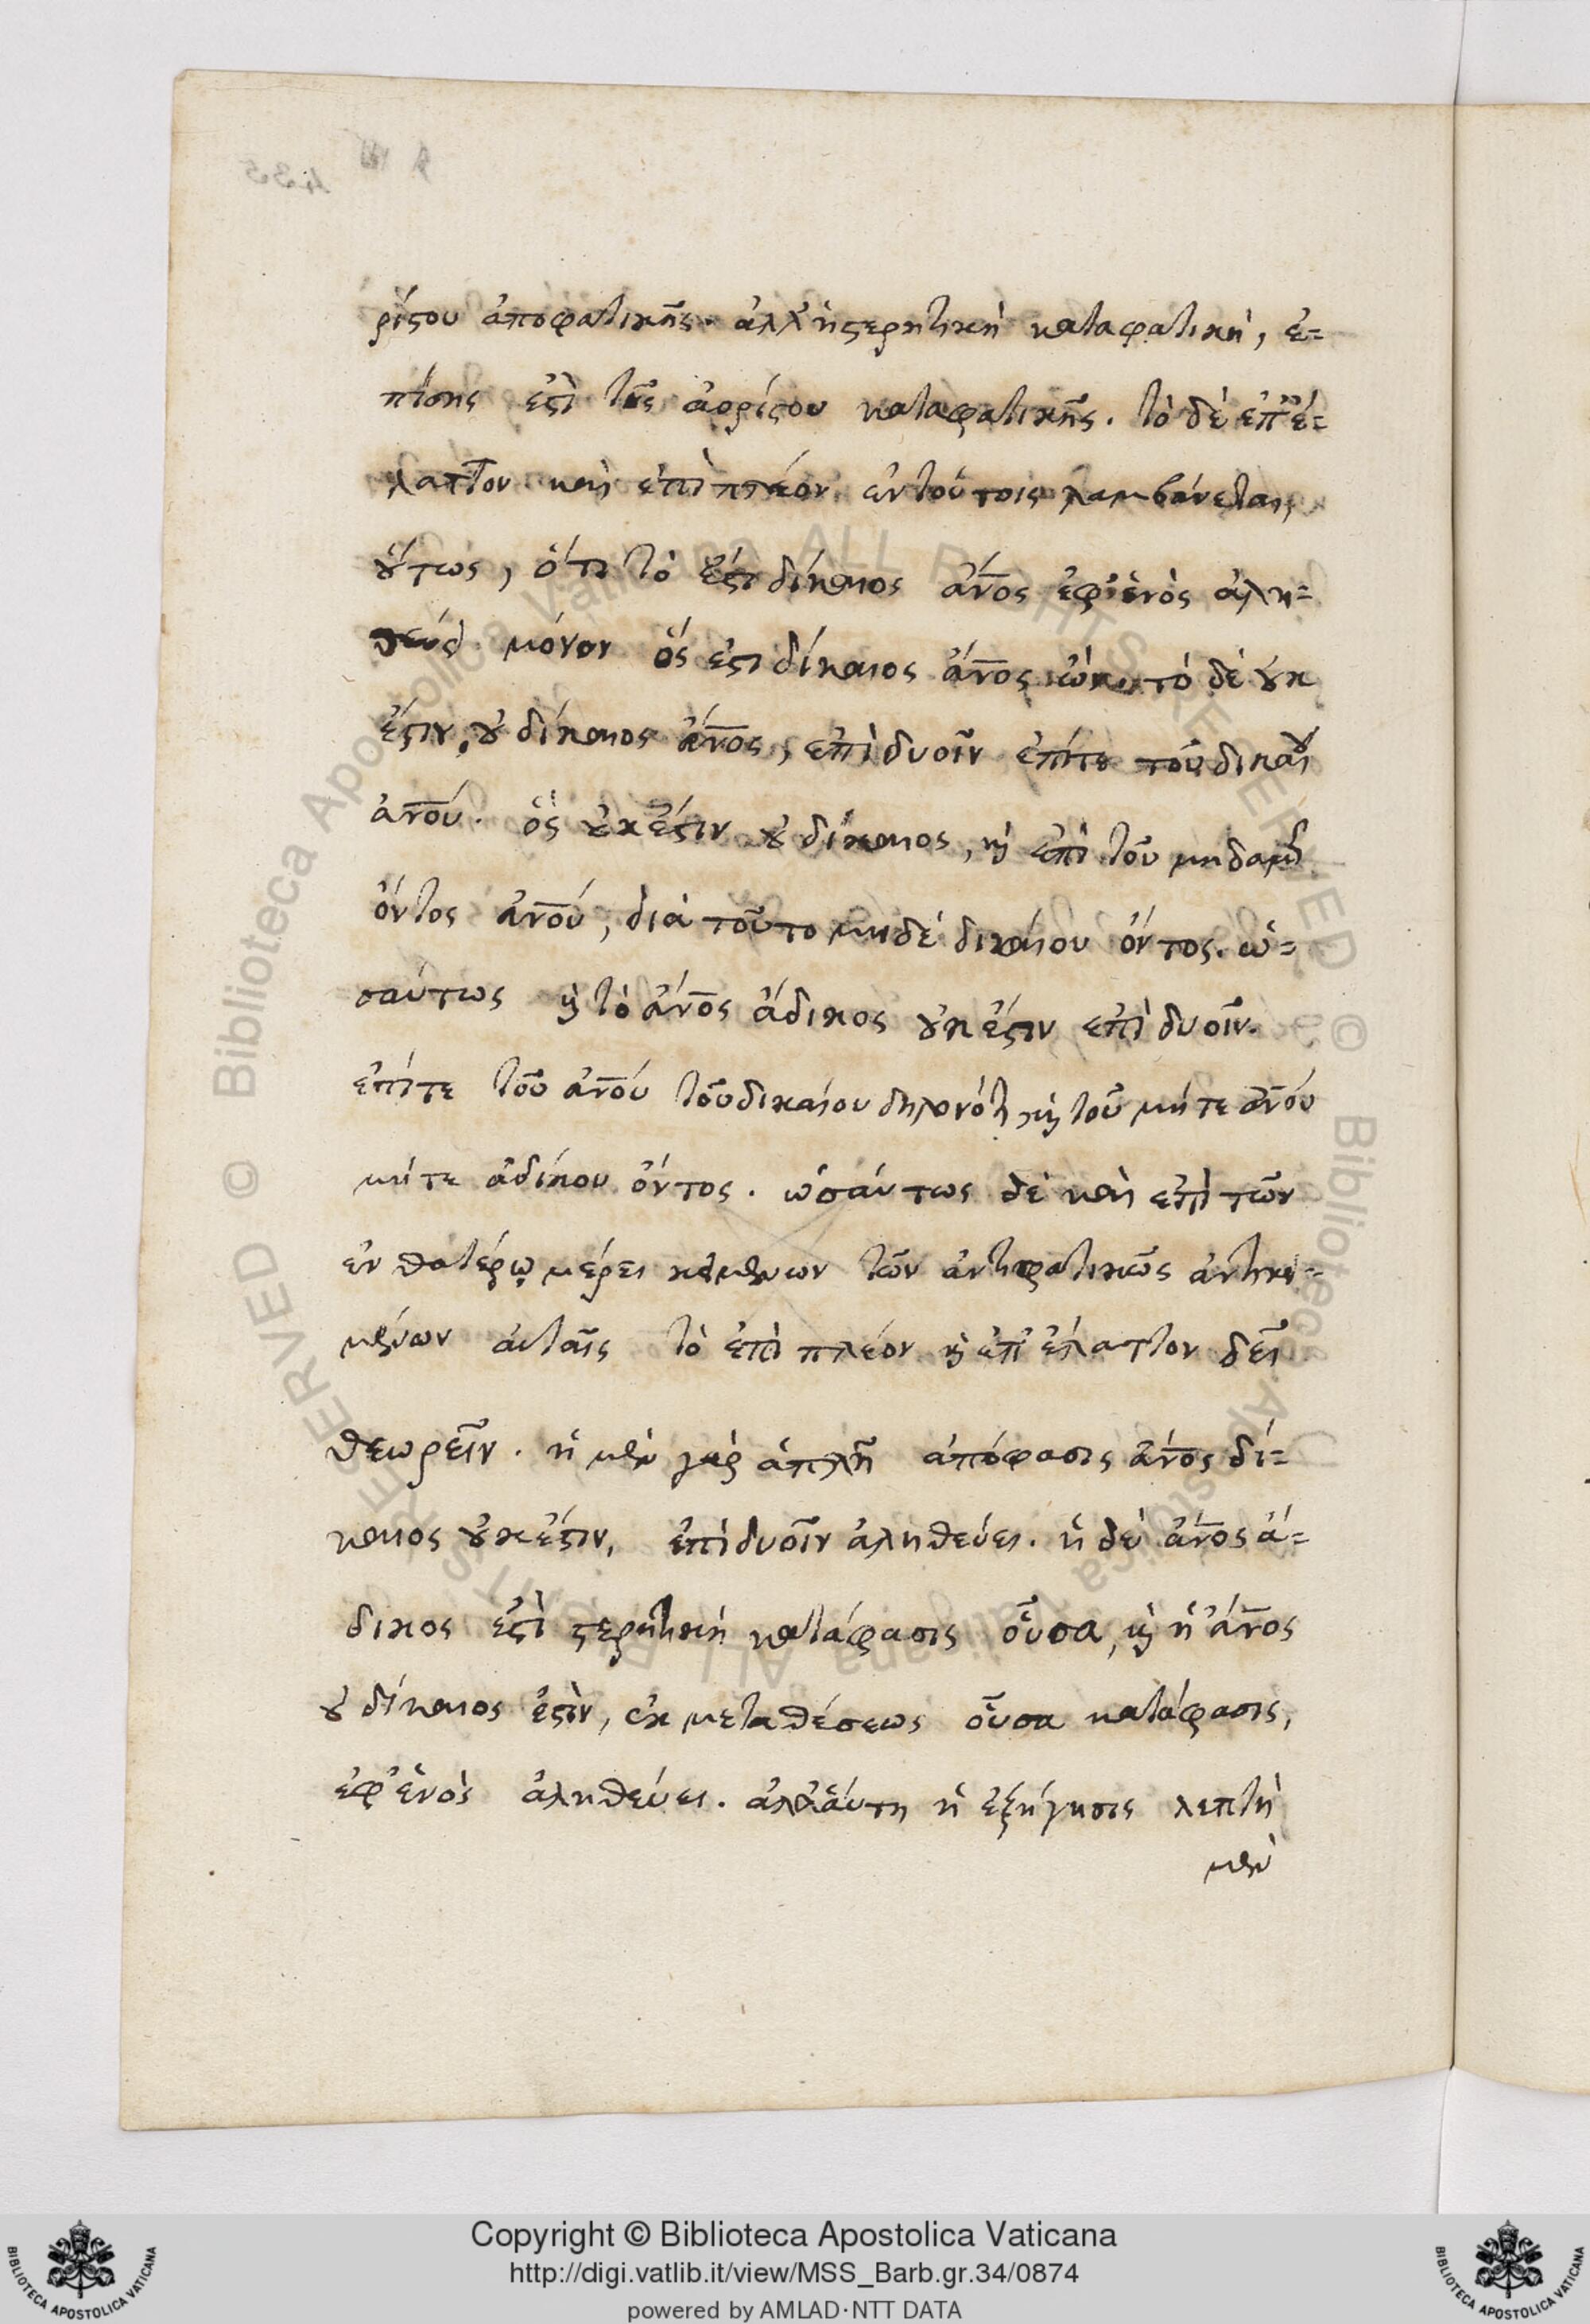 ρίϛου ἀποφατικῆς. ἀλλ' ἡ ϛερητικὴ καταφατικὴ, ἐ=
πίσης ἐϛὶ τῆς ἀορίϛου καταφατικῆς. τὸ δὲ ἐπ' ἔ=
λαττον καὶ ἐπὶ πλέον ἐν τούτοις λαμβάνεται,
ȣ́τως, ὅτι τὸ ἔϛι δίκαιος ἄν̅ο̅ς ἐφ' ἑνὸς ἀλη=
θεύει μόνον ὅς ἐϛι δίκαιος ἄν̅ο̅ς τὸ δὲ ȣ̓κ
ἔϛιν, ȣ̓ δίκαιος ἄν̅ο̅ς, ἐπὶ δυοῖν ἐπίτε τοῦ δικαίȣ
ἀν̅ο̅ύ. ὃς ȣ̓κ ἔϛιν ȣ̓ δίκαιος, ϗ ἐπὶ τοῦ μηδαμῆ
ὄντος ἀν̅ο̅ύ, διὰ τοῦτο μηδὲ δικαίου ὄντος. ὡ=
σαύτως ϗ τὸ ἄν̅ο̅ς ἄδικος ȣ̓κ ἔϛιν ἐπὶ δυοῖν.
ἐπίτε τοῦ ἀν̅ο̅ύ τοῦ δικαίου δηλονότι ϗ τοῦ μήτε ἀν̅ο̅ύ
μήτε ἀδίκου ὄντος. ὡσαύτως δὲ καὶ ἐπὶ τῶν
ἐν θατέρῳ μέρει κειμένων τῶν ἀντιφατικῶς ἀντικει=
μένων αὐταῖς τὸ ἐπὶ πλέον ϗ ἐπ' ἔλαττον δεῖ
θεωρεῖν. ἡ μὲν γὰρ ἁπλῆ ἀπόφασις ἄν̅ο̅ς δί=
καιος ȣ̓κ ἔϛιν, ἐπὶ δυοῖν ἀληθεύει. ἡ δὲ ἄν̅ο̅ς ἄ=
δικος ἐϛὶ ϛερητικὴ κατάφασις οὖσα, ϗ ἡ ἄν̅ο̅ς
ȣ̓ δίκαιος ἐϛὶν, ἐκ μεταθέσεως οὖσα κατάφασις,
ἐφ' ἑνὸς ἀληθεύει. ἀλλ' αὕτη ἡ ἐξήγησις λεπτὴ
μὲν
Copyright © Biblioteca Apostolica Vaticana
http://digi.vatlib.it/view/MSS_Barb.gr.34/0874
powered by AMLAD·NTT DATA